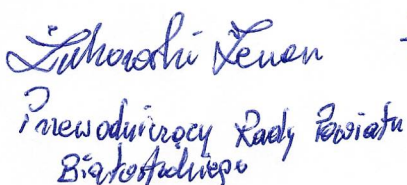 Żukowski Zenon
Przewodniczący Rady Powiatu
Białostockiego